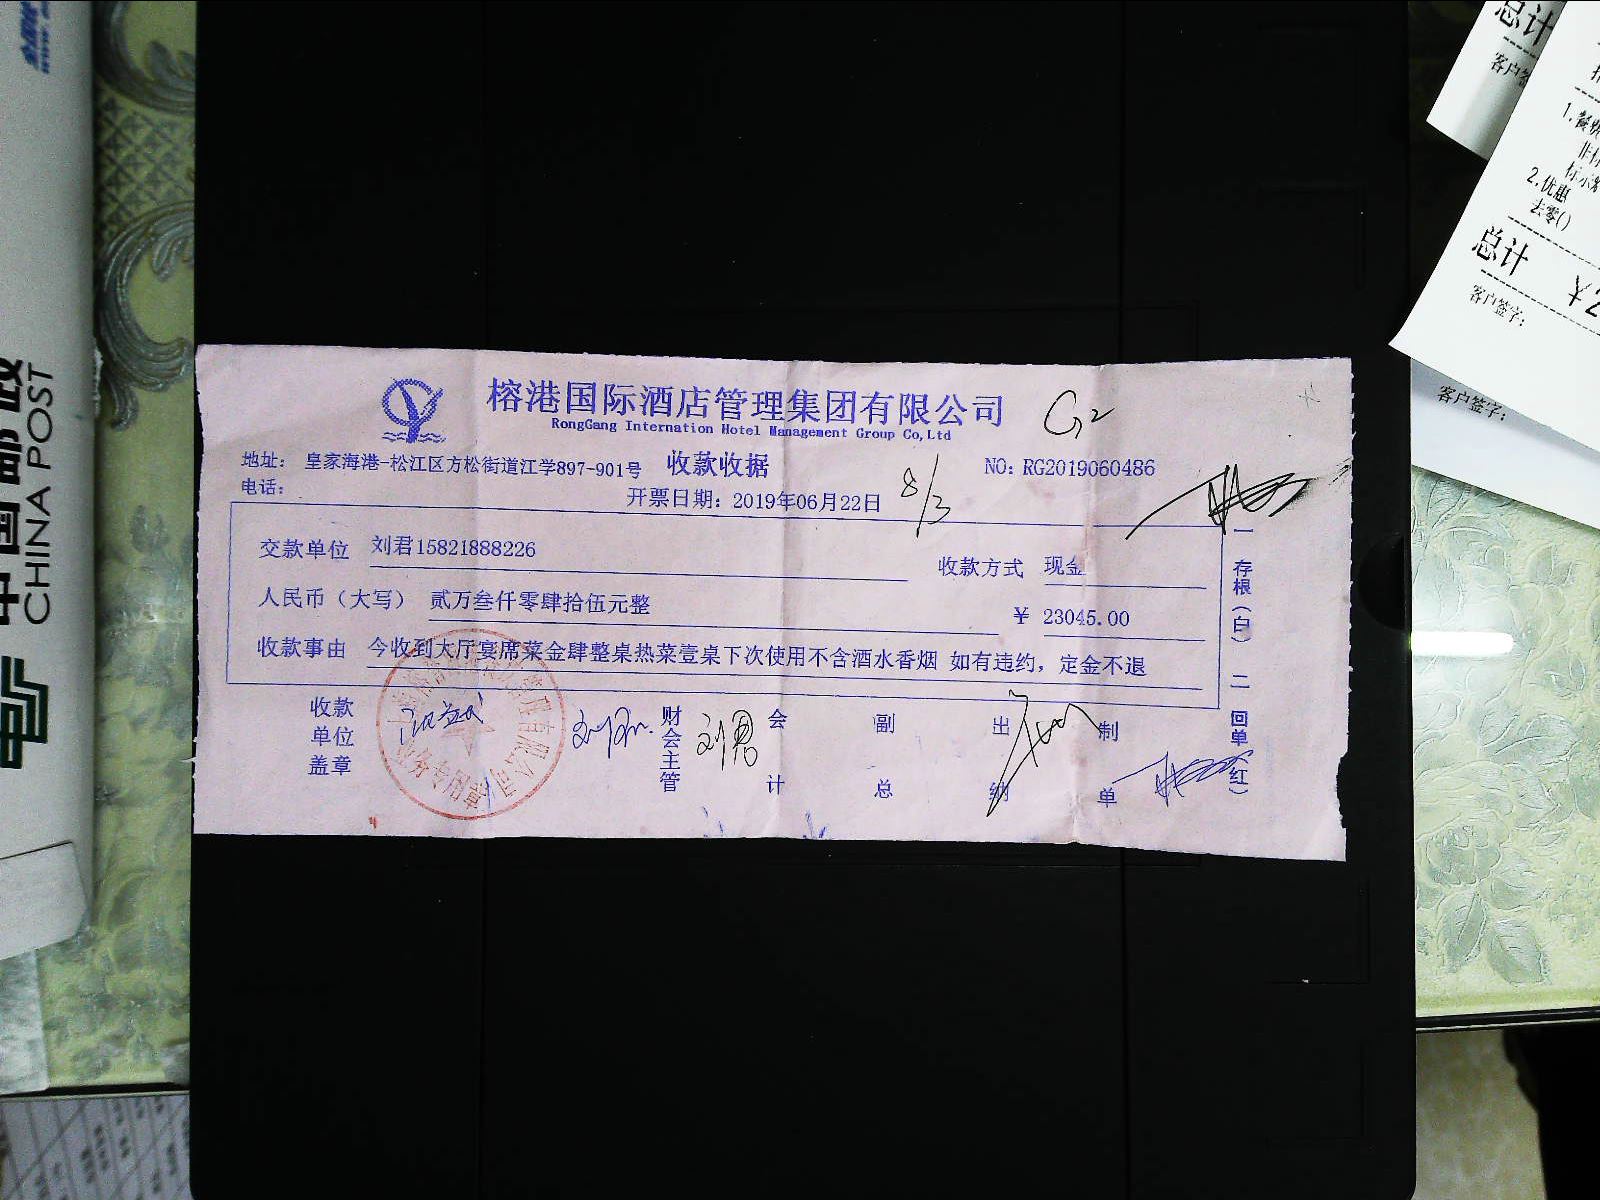 榕港国际酒店管理集团有限公司
RongGang Internation Hotel Management Group Co,Ltd
G2
地址： 皇家海港-松江区方松街道江学897-901号 收款收据 NO：RG2019060486
电话： 开票日期：2019年06月22日 8/3
交款单位 刘君15821888226 收款方式 现金
人民币（大写） 贰万叁仟零肆拾伍元整 ￥ 23045.00
收款事由 今收到大厅宴席菜金肆整桌热菜壹桌下次使用不含酒水香烟 如有违约，定金不退
收款单位盖章 财会主管 会计 副总 出纳 制单
刘君
一 存根（白） 二 回单（红）
管理有限公司
业务专用章
中国邮政
CHINA POST
总计
客户签
1.餐
2.优惠
去零()
总计
客户签字：
客户签字：